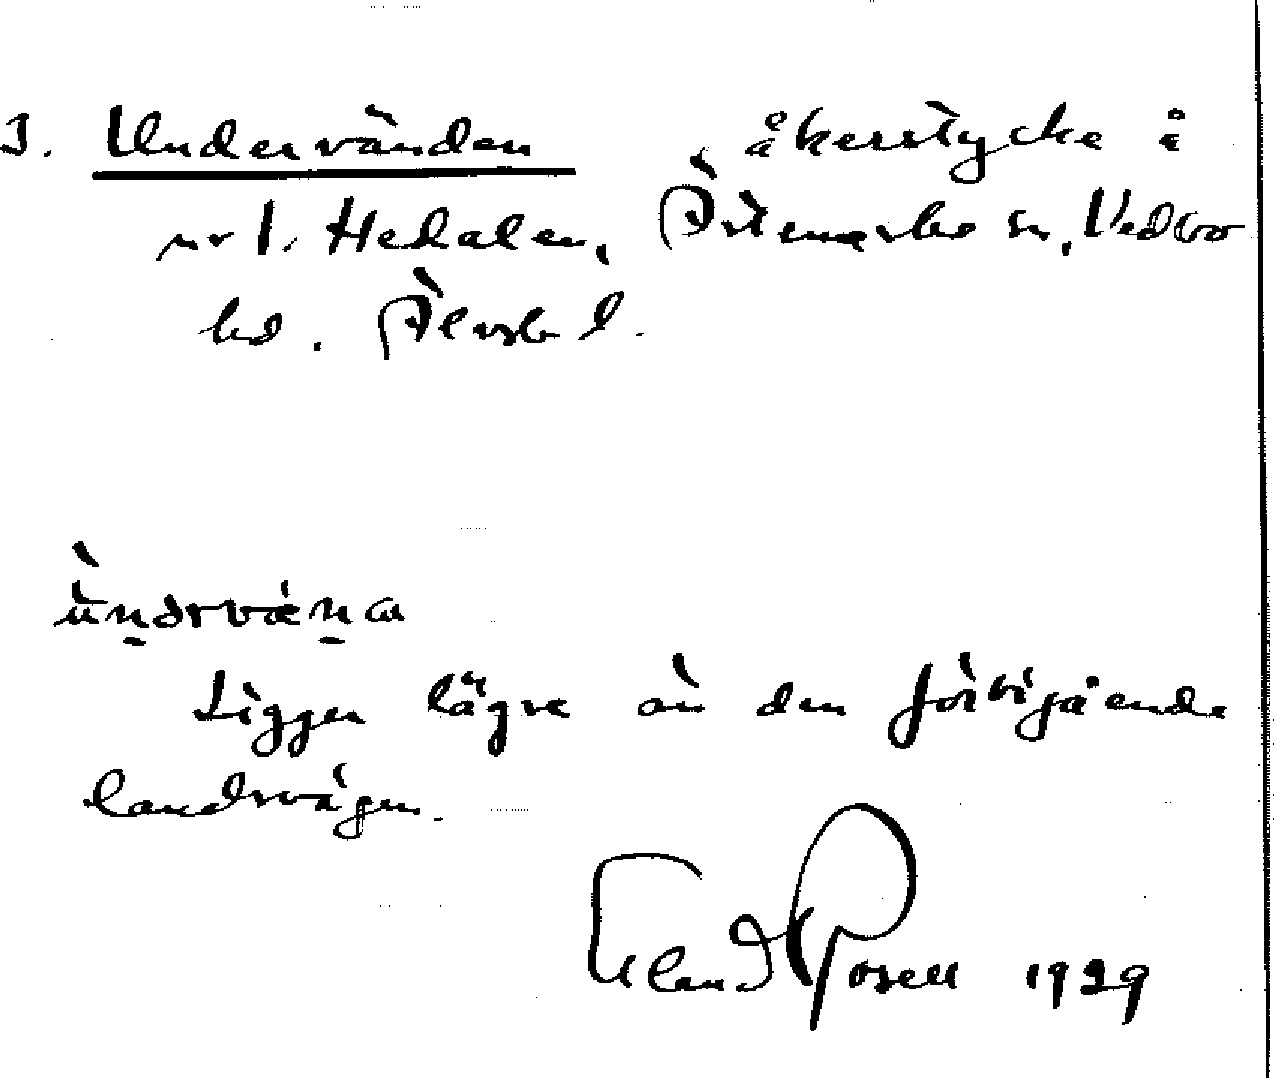 3. Undervänden, åkerstycke i
nr 1. Hedalen, Ärtemarks sn, Vedbo
hd. Älvsb l.
ùn̠drvæn̠a
Ligger lägre än den förbigående
landsvägen.
Eland Rosell 1929